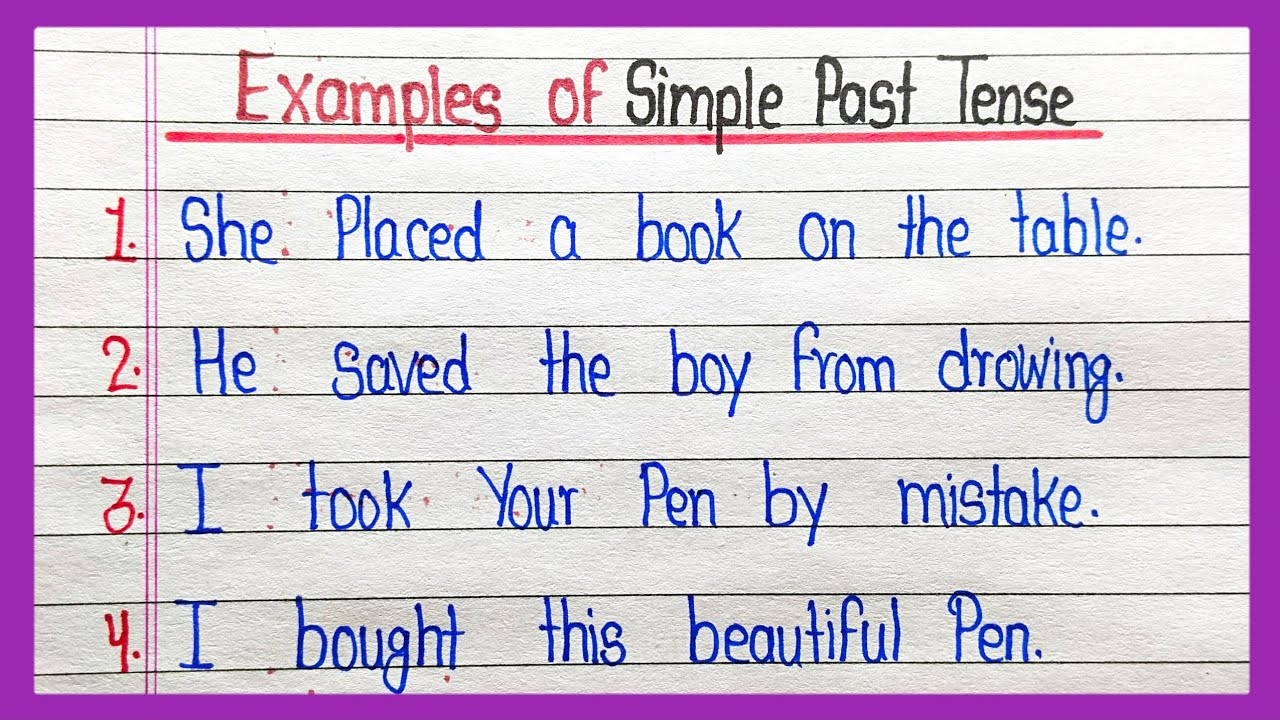 Examples of Simple Past Tense
1. She Placed a book on the table.
2. He saved the boy from drowing.
3. I took Your Pen by mistake.
4. I bought this beautiful Pen.